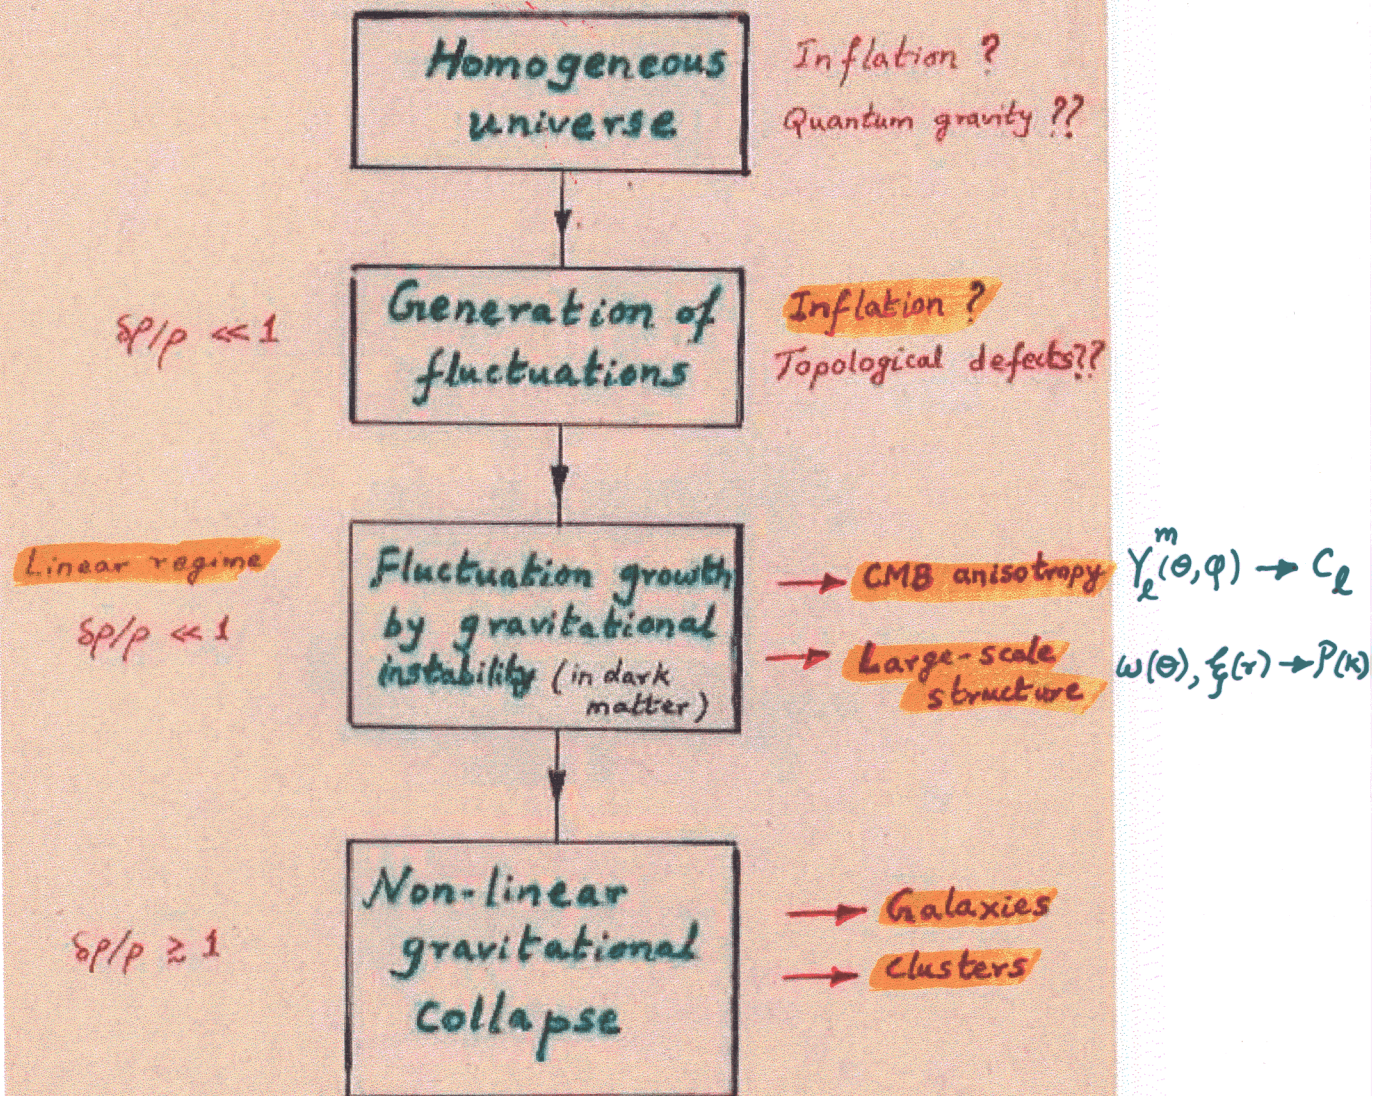 Homogeneous
universe
Inflation ?
Quantum gravity ??
δρ/ρ << 1
Generation of
fluctuations
Inflation ?
Topological defects??
Linear regime
δρ/ρ << 1
Fluctuation growth
by gravitational
instability (in dark
matter)
→ CMB anisotropy
Yₗᵐ(θ,φ) → Cₗ
→ Large-scale
structure
ω(θ), ξ(r) → P(k)
δρ/ρ ≳ 1
Non-linear
gravitational
collapse
→ Galaxies
→ clusters